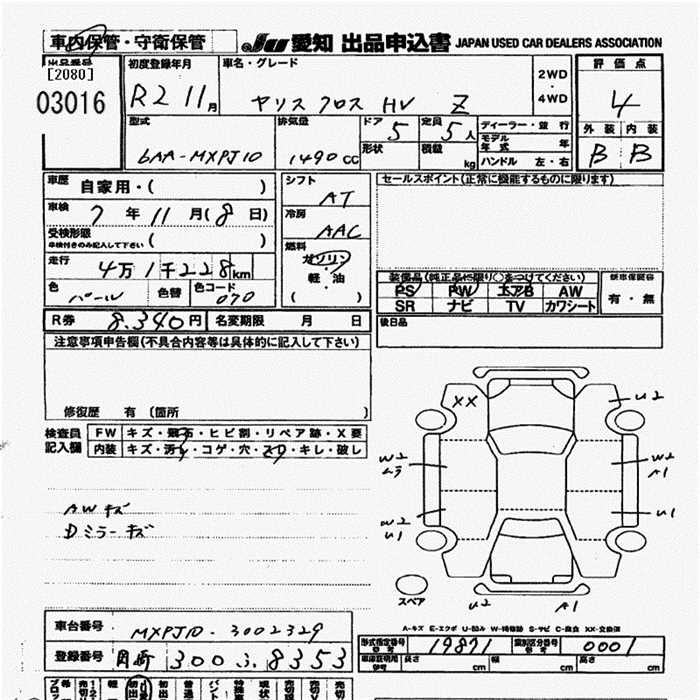 車内保管・守衛保管 JU 愛知 出品申込書 JAPAN USED CAR DEALERS ASSOCIATION
出品番号
[2080]
03016
初度登録年月
R2 11月
車名・グレード
ヤリス クロス HV Z
2WD
・
4WD
評価点
4
型式
6AA-MXPJ10
排気量
1490cc
ドア
5
定員
5人
形状
積載
kg
ディーラー・並行
モデル年式 年
ハンドル 左・右
外装 内装
B B
車歴
自家用・( )
車検
7年11月(8日)
受検形態
車検付きのみ記入して下さい ( )
走行
4万1千228km
色
パール
色替
色コード
070
シフト
AT
冷房
AAC
燃料
ガソリン
・
軽・油
( )
セールスポイント(正常に機能するものに限ります)
装備品(純正品に限り○をつけてください)
PS PW エアB AW
SR ナビ TV カワシート
新車保証書
有・無
R券 8,340円 名変期限 月 日
後日品
注意事項申告欄(不具合内容等は具体的に記入して下さい)
修復歴 有 〔箇所 〕
検査員
記入欄
FW キズ・飛石・ヒビ割・リペア跡・X要
内装 キズ・汚れ・コゲ・穴・スリ・キレ・破し
AW キズ
Dミラー キズ
XX
U2
W2
ムラ
W2
A1
W2
U1
U1
スペア
U2
A1
A-キズ E-エクボ U-凹み W-補修跡 S-サビ C-腐食 XX-交換済
車台番号
MXPJ10-3002329
登録番号
岡崎 300 る 8353
型式指定番号
19871
類別区分番号
0001
車庫証明用
長さ cm 幅 cm 高さ cm